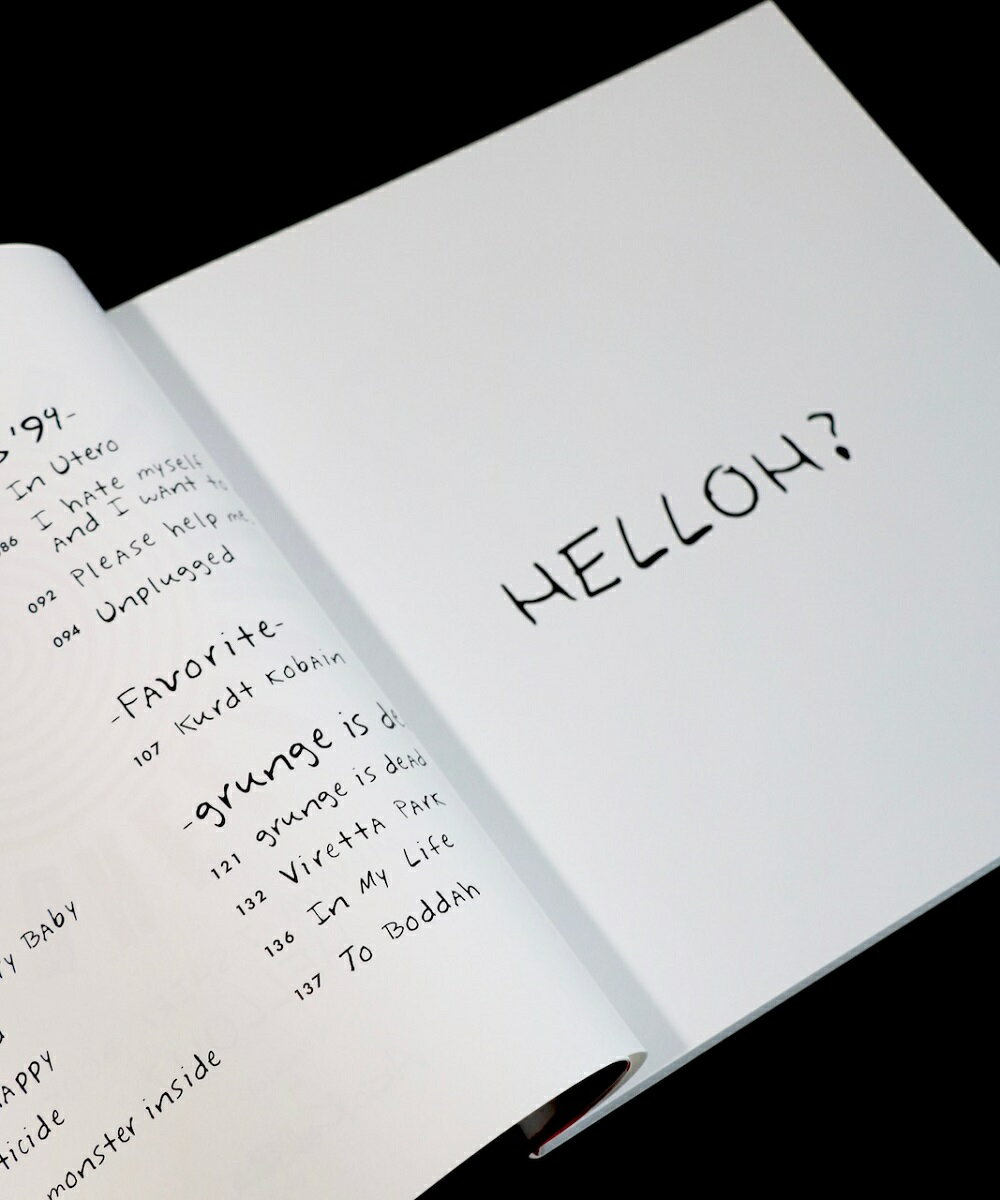 '94-
In Utero
086 I hAte myself
And I wAnt to
092 PleAse help me
094 Unplugged
-FAvorite-
107 Kurdt KobAin
-grunge is
121 grunge is deAd
132 VirettA PArk
136 In My Life
137 To BoddAh
BAby
monster inside
HELLOH?